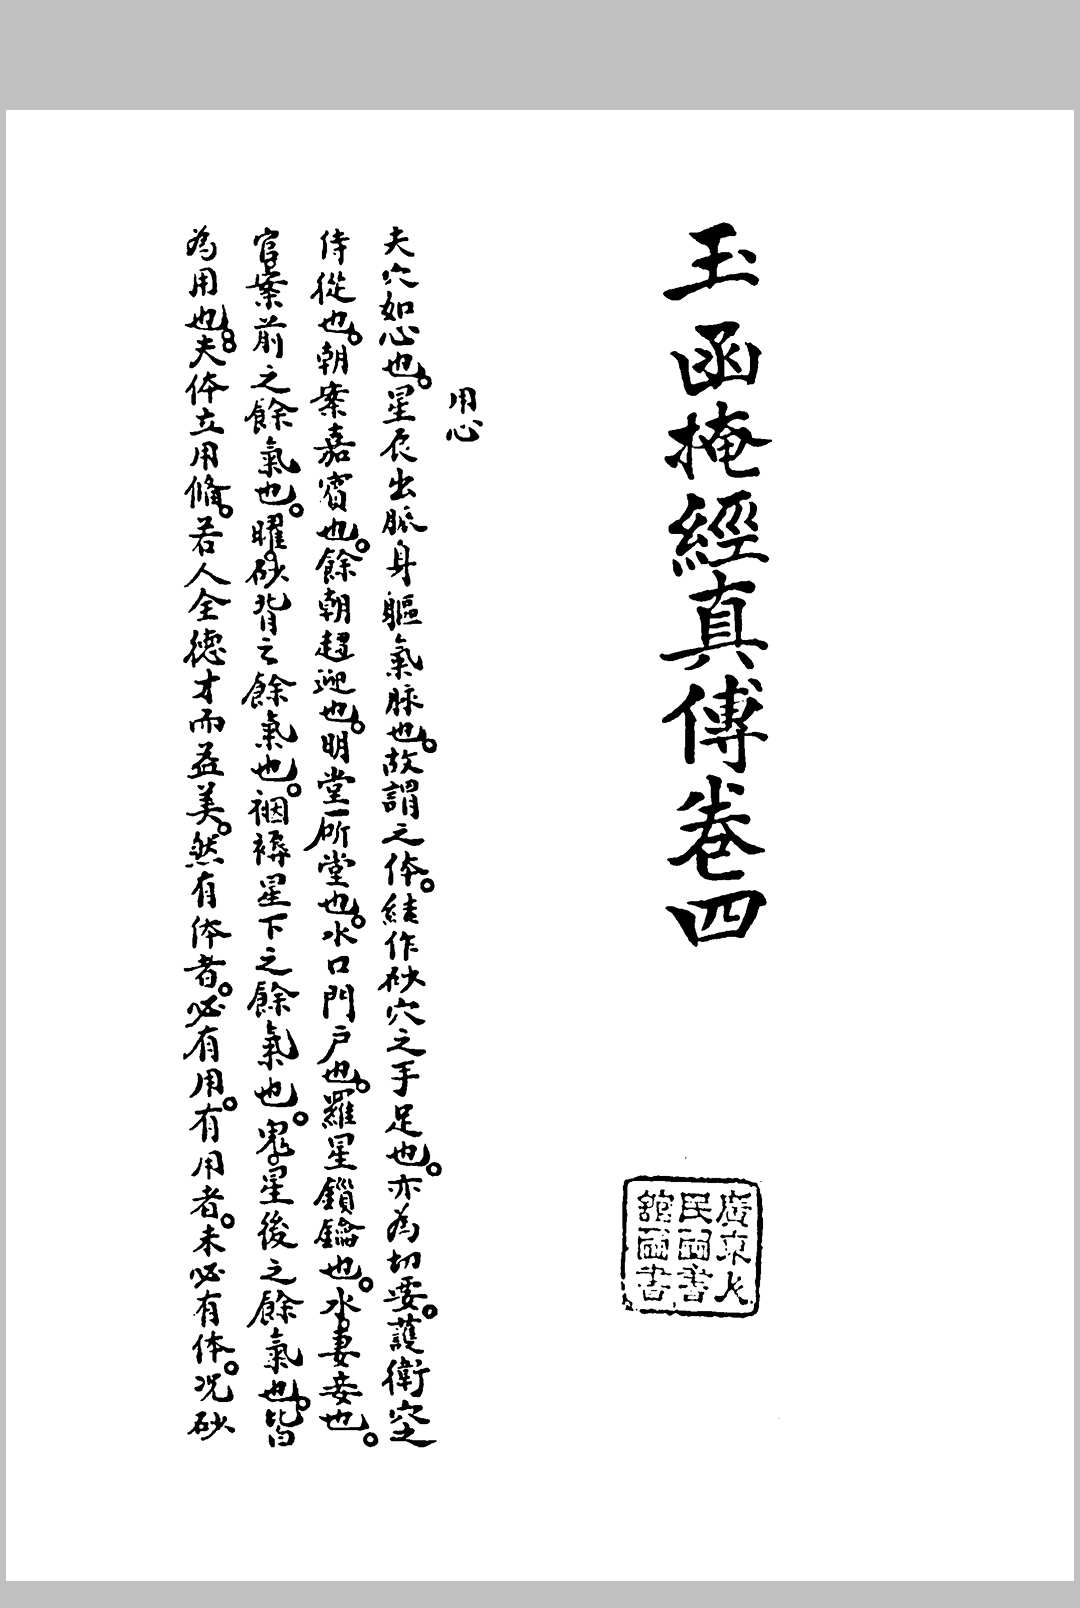 玉函掩經真傳卷四
廣東人
民啚書
舘啚書
用心
夫穴如心也。星辰出脈身軀氣脉也。故謂之体。結作砂穴之手足也。亦為切要。護衛穴之
侍從也。朝案嘉賓也。餘朝趨迎也。明堂一所堂也。水口門戶也。羅星鎖鑰也。水。妻妾也。
官案前之餘氣也。曜。砂背之餘氣也。裀褥星下之餘氣也。鬼。星後之餘氣也。皆
為用也。夫体立用脩。若人全德才而益美。然有体者。必有用。有用者。未必有体。况砂